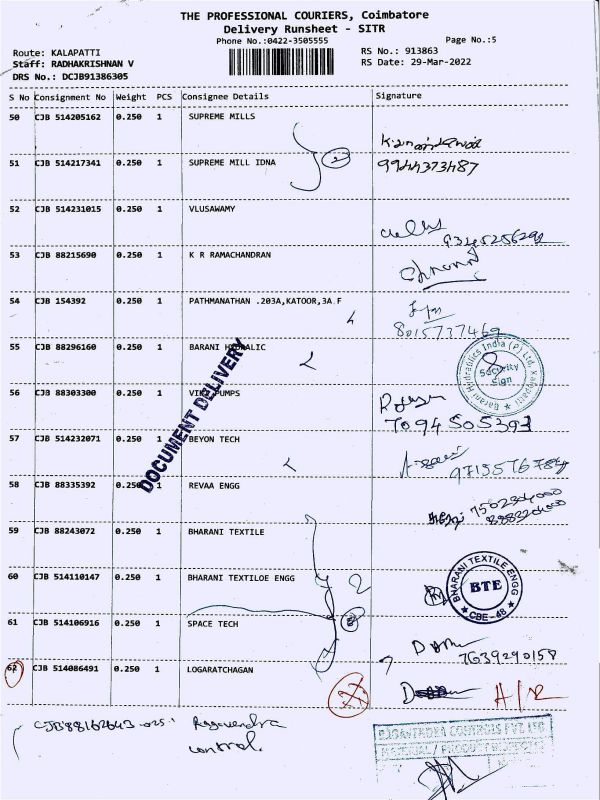 THE PROFESSIONAL COURIERS, Coimbatore
Delivery Runsheet - SITR
Phone No.:0422-3505555
Page No.:5
Route: KALAPATTI
RS No.: 913863
Staff: RADHAKRISHNAN V
RS Date: 29-Mar-2022
DRS No.: DCJB91386305
S No Consignment No Weight PCS Consignee Details Signature
50 CJB 514205162 0.250 1 SUPREME MILLS
51 CJB 514217341 0.250 1 SUPREME MILL IDNA
9944373487
52 CJB 514231015 0.250 1 VLUSAWAMY
53 CJB 88215690 0.250 1 K R RAMACHANDRAN
54 CJB 154392 0.250 1 PATHMANATHAN .203A,KATOOR,3A F
8015737469
55 CJB 88296160 0.250 1 BARANI HYDRALIC
Barani Hydraulics India (P) Ltd, Kalapatti
Security Sign
56 CJB 88303300 0.250 1 VIKI PUMPS
7094505393
DOCUMENT DELIVERY
57 CJB 514232071 0.250 1 BEYON TECH
58 CJB 88335392 0.250 1 REVAA ENGG
59 CJB 88243072 0.250 1 BHARANI TEXTILE
60 CJB 514110147 0.250 1 BHARANI TEXTILOE ENGG
2
BHARANI TEXTILE ENGG
BTE
CBE-48
61 CJB 514106916 0.250 1 SPACE TECH
7639290158
62 CJB 514086491 0.250 1 LOGARATCHAGAN
A/R
CJB88162643 .025. Ragavendra
control.
RAGAVENDRA CONTROLS PVT LTD